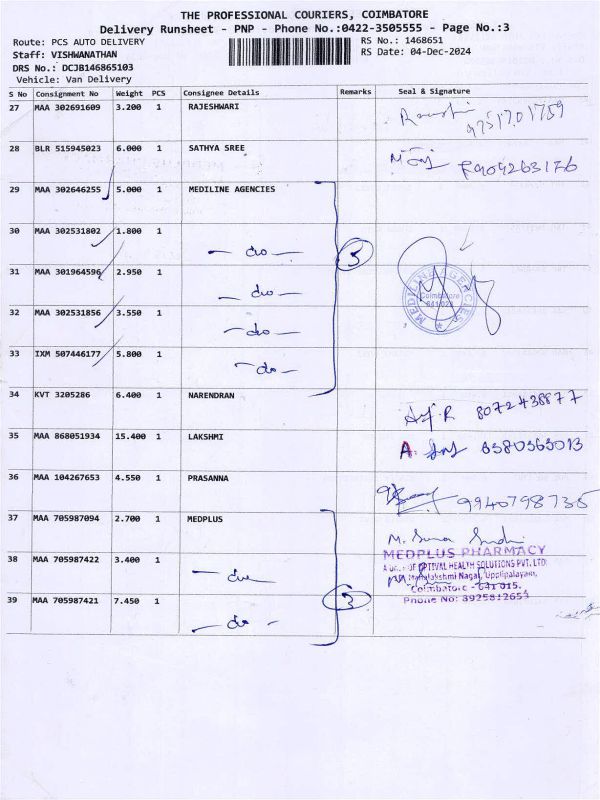 THE PROFESSIONAL COURIERS, COIMBATORE
Delivery Runsheet - PNP - Phone No.:0422-3505555 - Page No.:3
Route: PCS AUTO DELIVERY RS No.: 1468651
Staff: VISHWANATHAN RS Date: 04-Dec-2024
DRS No.: DCJB146865103
Vehicle: Van Delivery
S No Consignment No Weight PCS Consignee Details Remarks Seal & Signature
27 MAA 302691609 3.200 1 RAJESHWARI 9751701759
28 BLR 515945023 6.000 1 SATHYA SREE 8904263176
29 MAA 302646255 5.000 1 MEDILINE AGENCIES
30 MAA 302531802 1.800 1
— do — 5
31 MAA 301964596 2.950 1 MEDILINE AGENCIES
— do — Coimbatore
641 028
32 MAA 302531856 3.550 1
— do —
33 IXM 507446177 5.800 1
— do —
34 KVT 3205286 6.400 1 NARENDRAN 8072438877
35 MAA 868051934 15.400 1 LAKSHMI A. 6380363013
36 MAA 104267653 4.550 1 PRASANNA 9940798735
37 MAA 705987094 2.700 1 MEDPLUS M.
MEDPLUS PHARMACY
38 MAA 705987422 3.400 1 OF OPTIVAL HEALTH SOLUTIONS PVT. LTD
— do — Mahalakshmi Nagar, Upplipalayam,
Coimbatore - 641 015.
39 MAA 705987421 7.450 1 3 Phone No: 8925812653
— do —